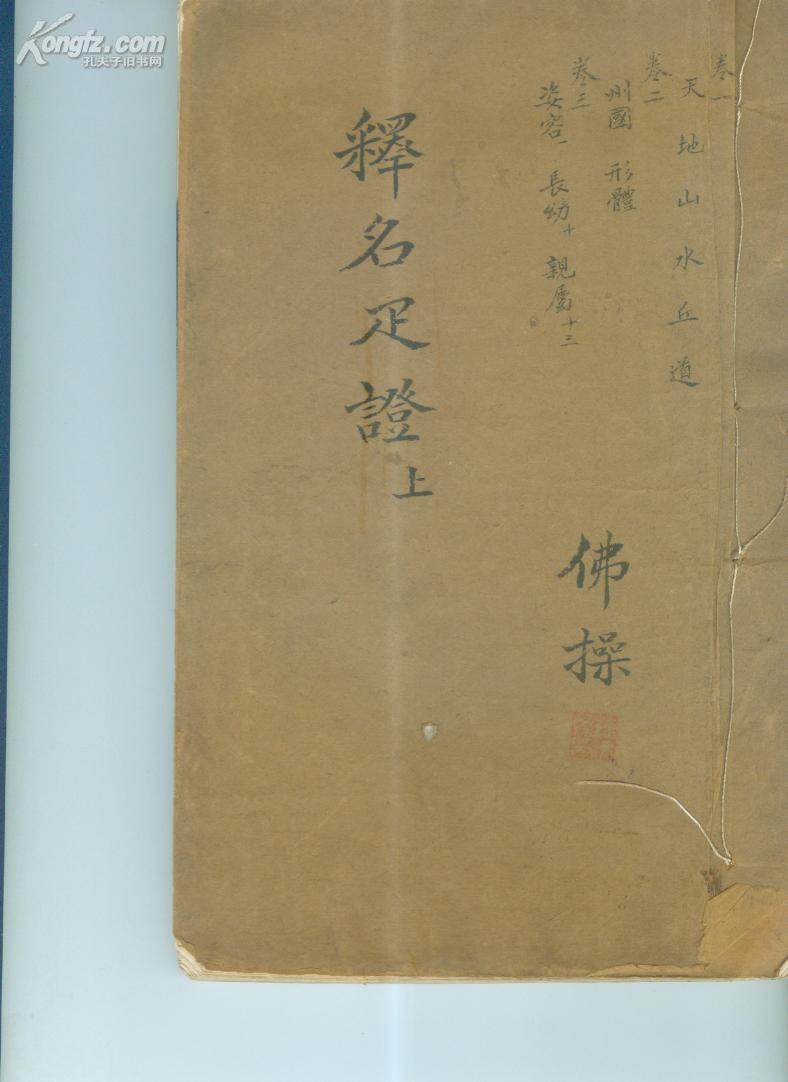 Kongfz.com
孔夫子旧书网
卷一
天 地 山 水 丘 道
卷二
州國 形體
卷三
姿容一 長幼十 親屬十三
釋名疋證上
佛操